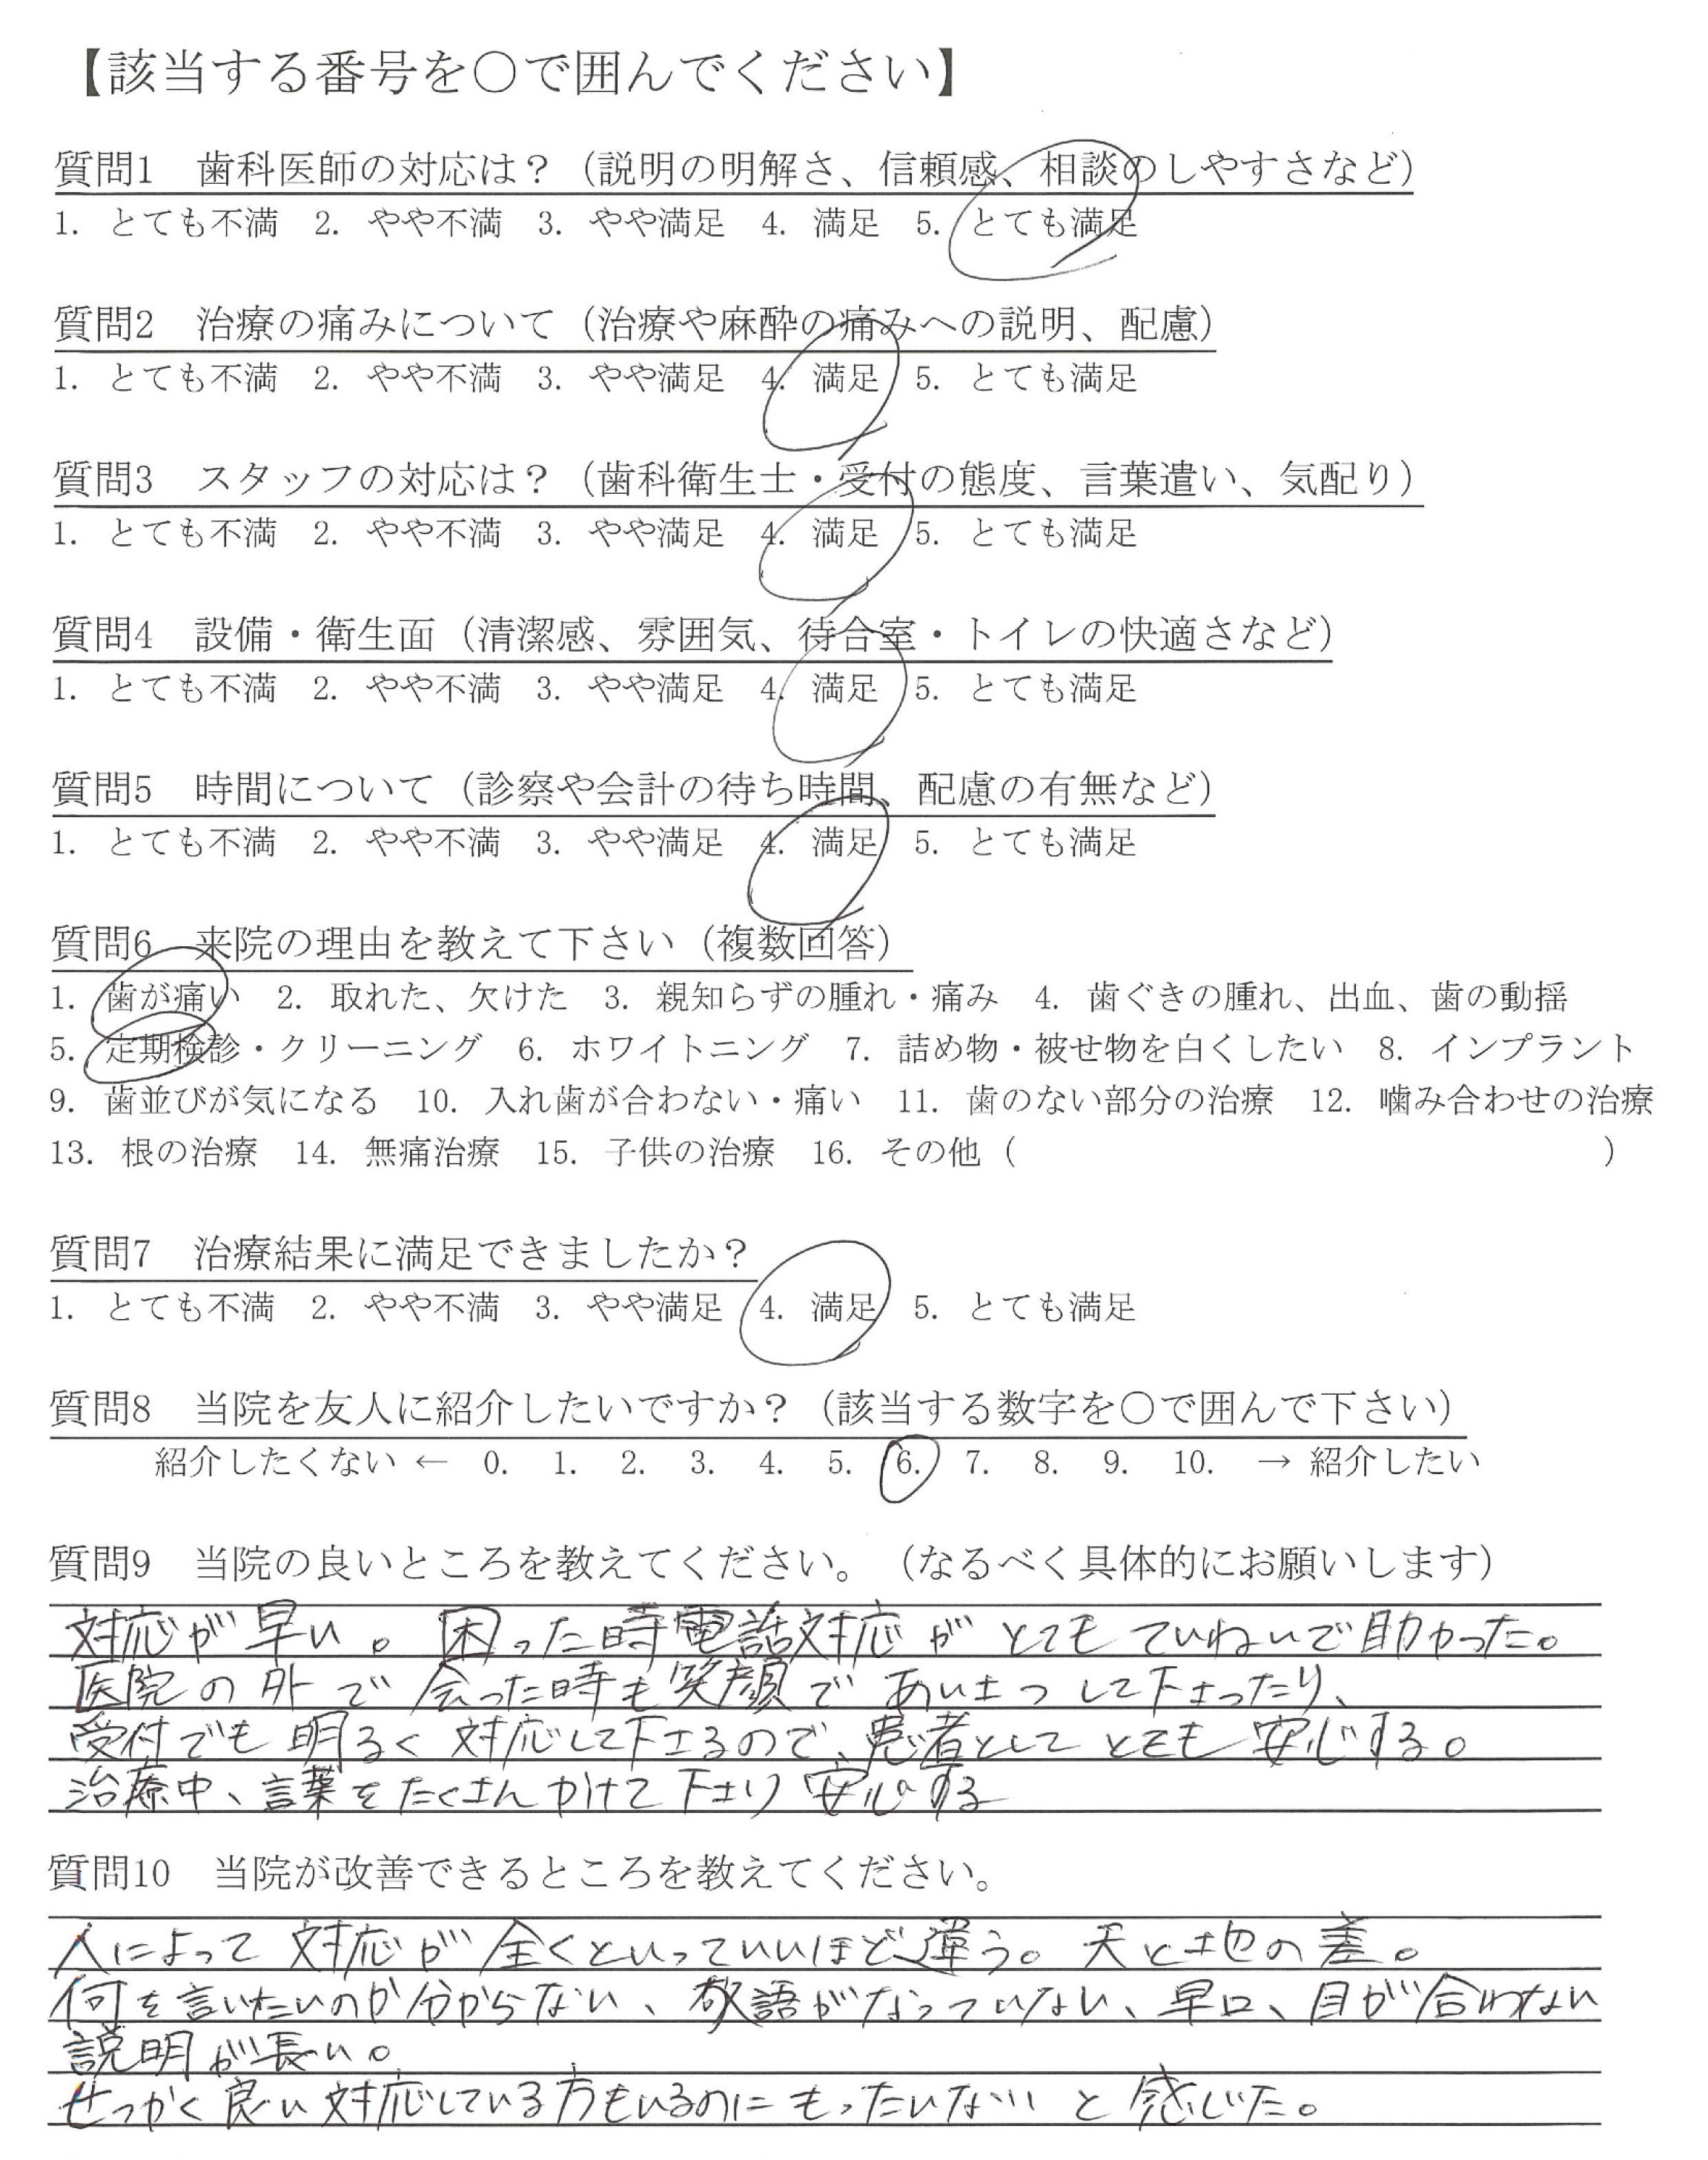 【該当する番号を○で囲んでください】
質問1　歯科医師の対応は？（説明の明解さ、信頼感、相談のしやすさなど）
1. とても不満　2. やや不満　3. やや満足　4. 満足　5. とても満足
質問2　治療の痛みについて（治療や麻酔の痛みへの説明、配慮）
1. とても不満　2. やや不満　3. やや満足　4. 満足　5. とても満足
質問3　スタッフの対応は？（歯科衛生士・受付の態度、言葉遣い、気配り）
1. とても不満　2. やや不満　3. やや満足　4. 満足　5. とても満足
質問4　設備・衛生面（清潔感、雰囲気、待合室・トイレの快適さなど）
1. とても不満　2. やや不満　3. やや満足　4. 満足　5. とても満足
質問5　時間について（診察や会計の待ち時間、配慮の有無など）
1. とても不満　2. やや不満　3. やや満足　4. 満足　5. とても満足
質問6　来院の理由を教えて下さい（複数回答）
1. 歯が痛い　2. 取れた、欠けた　3. 親知らずの腫れ・痛み　4. 歯ぐきの腫れ、出血、歯の動揺
5. 定期検診・クリーニング　6. ホワイトニング　7. 詰め物・被せ物を白くしたい　8. インプラント
9. 歯並びが気になる　10. 入れ歯が合わない・痛い　11. 歯のない部分の治療　12. 噛み合わせの治療
13. 根の治療　14. 無痛治療　15. 子供の治療　16. その他（　　　　　　　　　　　　　　）
質問7　治療結果に満足できましたか？
1. とても不満　2. やや不満　3. やや満足　4. 満足　5. とても満足
質問8　当院を友人に紹介したいですか？（該当する数字を○で囲んで下さい）
紹介したくない ← 0. 1. 2. 3. 4. 5. 6. 7. 8. 9. 10. → 紹介したい
質問9　当院の良いところを教えてください。（なるべく具体的にお願いします）
対応が早い。困った時電話対応がとてもていねいで助かった。
医院の外で会った時も笑顔であいさつして下さったり、
受付でも明るく対応して下さるので、患者としてとても安心する。
治療中、言葉をたくさんかけて下さり安心する
質問10　当院が改善できるところを教えてください。
人によって対応が全くといっていいほど違う。天と地の差。
何を言いたいのか分からない、敬語がなっていない、早口、目が合わない
説明が長い。
せっかく良い対応している方もいるのにもったいないと感じた。